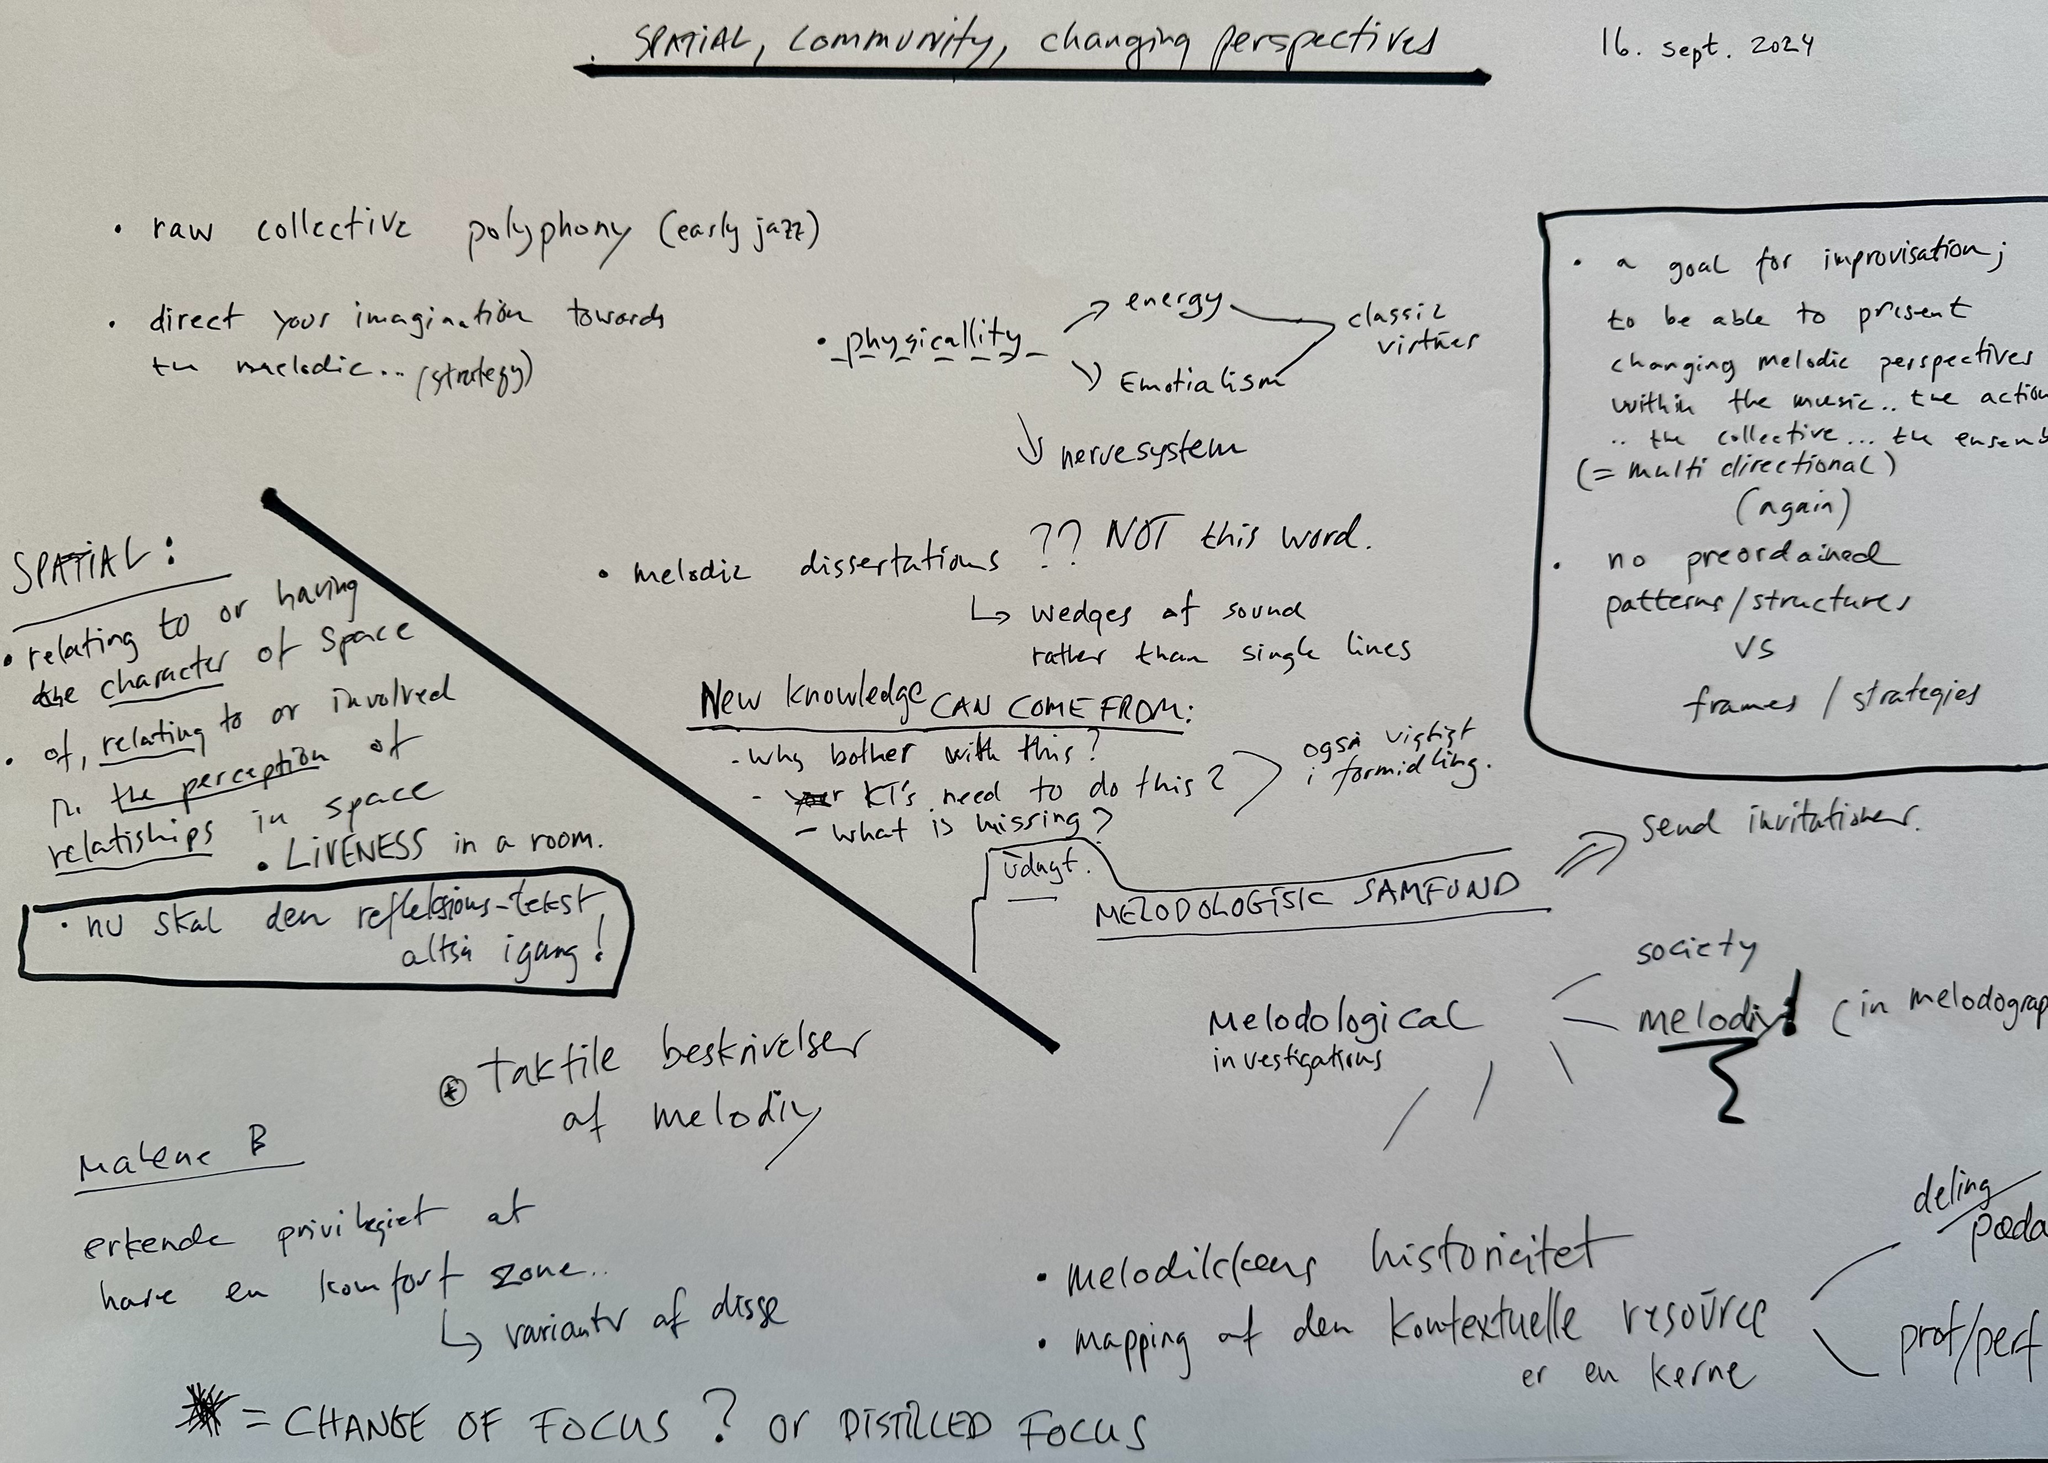 SPATIAL, community, changing perspectives
16. sept. 2024
• raw collective polyphony (early jazz)
• direct your imagination towards
the melodic... (strategy)
• physicallity
energy
Emotialism
classic
virtues
nervesystem
• a goal for improvisation;
to be able to present
changing melodic perspectives
within the music.. the action
.. the collective... the ensemb
(= multi directional)
(again)
• no preordained
patterns/structures
VS
frames / strategies
• melodic dissertations ?? NOT this word.
↳ wedges of sound
rather than single lines
SPATIAL:
• relating to or having
the character of space
• of, relating to or involved
in the perception of
relatiships in space
• LIVENESS in a room.
• nu skal den refleksions-tekst
altså igang!
New knowledge CAN COME FROM:
- why bother with this?
- KT's need to do this?
- what is missing?
også vigtigt
i formidling.
udvgt.
MELODOLOGISK SAMFUND
send invitationer.
Melodological
investigations
society
melodiy! (in melodograp
• taktile beskrivelser
af melodiy
Malene B
erkende privilegiet at
have en komfort zone..
↳ varianter af disse
• melodikkens historicitet
• mapping af den kontextuelle resource
er en kerne
deling/
pæda
prof/perf
= CHANGE OF FOCUS ? or DISTILLED FOCUS